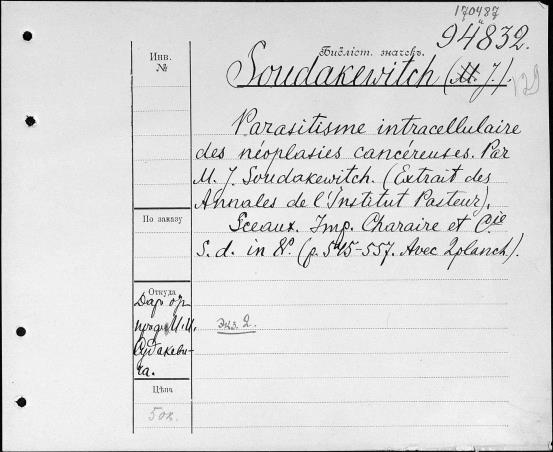 170487
94832.
Библіот. значекъ.
Инв.
№
Soudakewitch (M. J.).
129
Parasitisme intracellulaire
des néoplasies cancéreuses. Par
M. J. Soudakewitch. (Extrait des
Annales de l'Institut Pasteur).
Sceaux. Imp. Charaire et Cie
S. d. in 8º. (p. 545-557. Avec 2 planch).
По заказу
Откуда
Даръ
Экз. 2.
Судакеви-
ча.
Цѣна
50к.